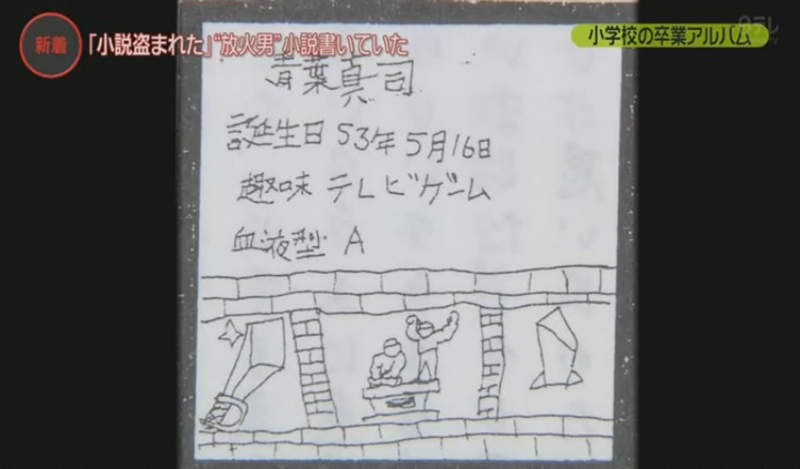 新着
「小説盗まれた」“放火男”小説書いていた
小学校の卒業アルバム
日テレ
青葉真司
誕生日 53年5月16日
趣味 テレビゲーム
血液型 A